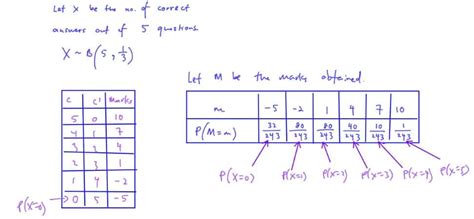 Let X be the no. of correct
answers out of 5 questions.
X ~ B(5, 1/3)
Let M be the marks obtained.
C C' Marks
5 0 10
4 1 7
3 2 4
2 3 1
1 4 -2
P(X=0) 0 5 -5
m -5 -2 1 4 7 10
P(M=m) 32/243 80/243 80/243 40/243 10/243 1/243
P(X=0) P(X=1) P(X=2) P(X=3) P(X=4) P(X=5)